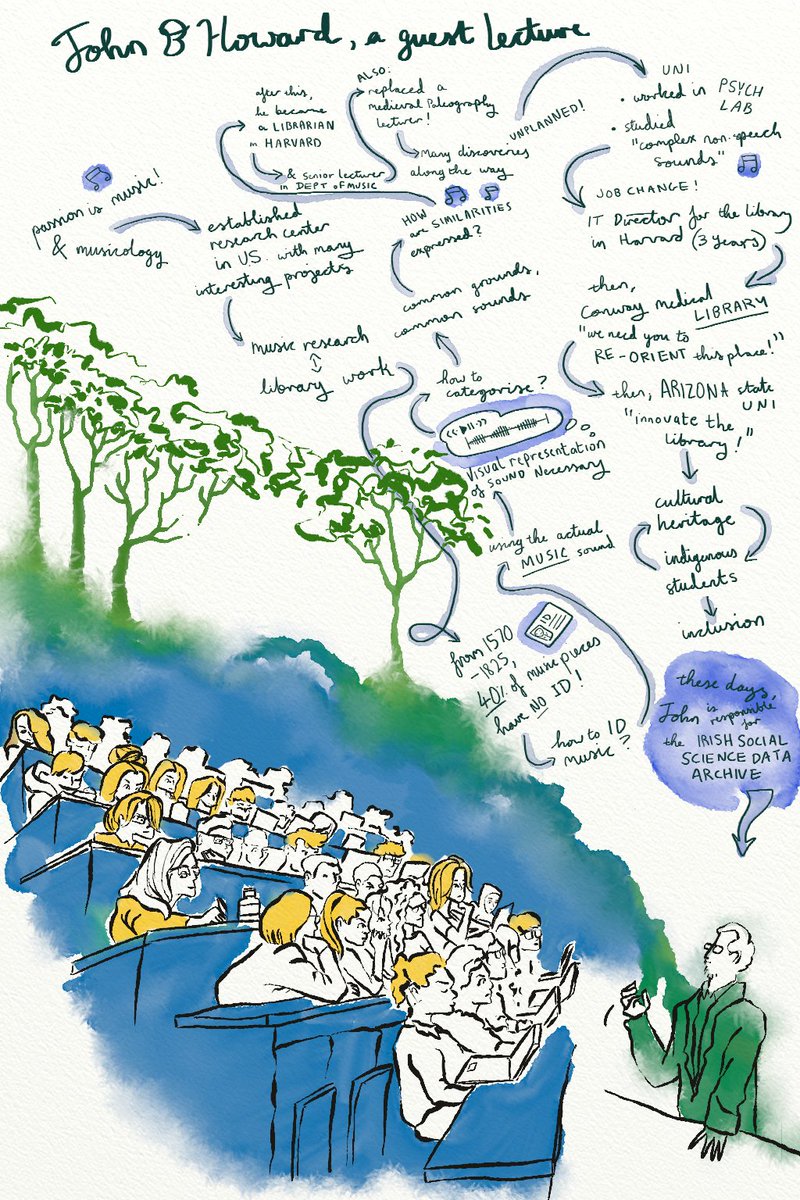 John B Howard, a guest lecture
passion is music!
& musicology
established
research center
in U.S. with many
interesting projects
music research
library work
from 1570
-1825,
40% of music pieces
have NO ID!
how to ID
music?
using the actual
MUSIC sound
visual representation
of SOUND Necessary
how to
categorise?
common grounds,
common sounds
HOW
are SIMILARITIES
expressed?
after this,
he became
a LIBRARIAN
in HARVARD
& senior lecturer
in DEPT OF MUSIC
ALSO:
replaced a
medieval Paleography
lecturer!
Many discoveries
along the way
UNPLANNED!
UNI
• worked in PSYCH
LAB
• studied
"complex non-speech
sounds"
JOB CHANGE!
IT Director for the library
in Harvard (3 years)
then,
Conway medical
LIBRARY
"we need you to
RE-ORIENT this place!"
then, ARIZONA state
UNI
"innovate the
library!"
cultural
heritage
indigenous
students
inclusion
these days,
John is
responsible
for
the IRISH SOCIAL
SCIENCE DATA
ARCHIVE